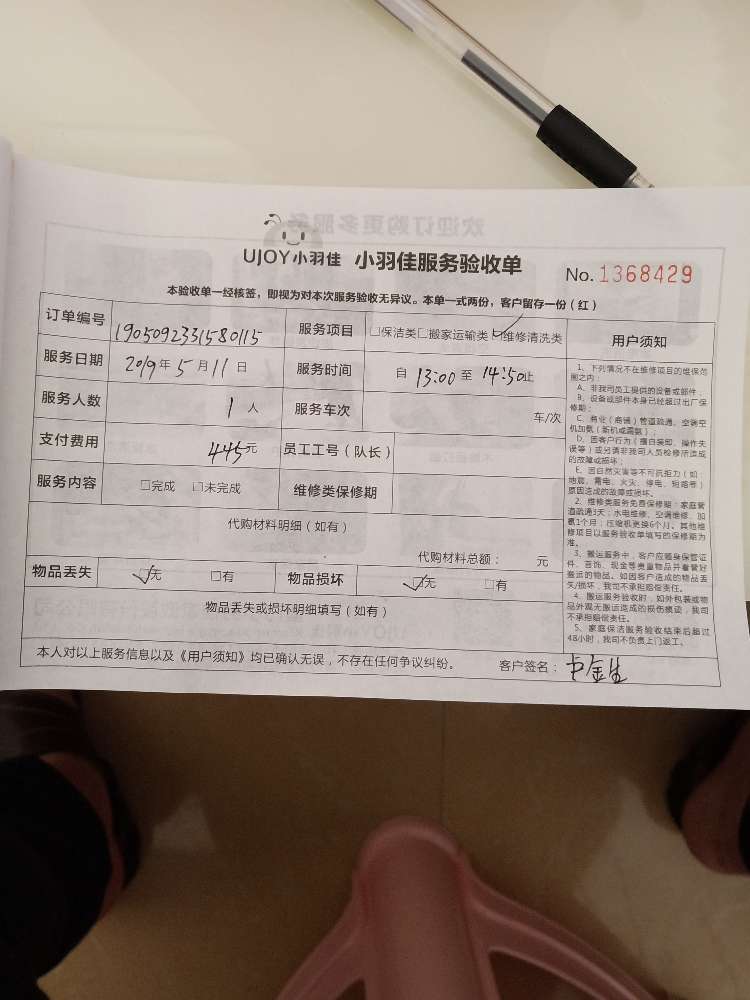 UJOY小羽佳 小羽佳服务验收单
No. 1368429
本验收单一经核签,即视为对本次服务验收无异议。本单一式两份,客户留存一份(红)
订单编号 1905092331580115 服务项目 □保洁类□搬家运输类☑维修清洗类
服务日期 2019年5月11日 服务时间 自 13:00 至 14:50止
服务人数 1 人 服务车次 车/次
支付费用 445元 员工工号(队长)
服务内容 □完成 □未完成 维修类保修期
代购材料明细(如有)
代购材料总额: 元
物品丢失 ☑无 □有 物品损坏 ☑无 □有
物品丢失或损坏明细填写(如有)
本人对以上服务信息以及《用户须知》均已确认无误,不存在任何争议纠纷。 客户签名:
用户须知
1、下列情况不在维修项目的维保范
围之内:
A、非我司员工提供的设备或部件;
B、设备或部件本身已经超过出厂保
修期;
C、商业(商铺)管道疏通、空调空
机加氨(新机或漏氨);
D、因客户行为(擅自装卸、操作失
误等)或另请非我司人员检修所造成
的故障或损坏;
E、因自然灾害等不可抗拒力(如:
地震、雷电、火灾、停电、短路等)
原因造成的故障或损坏。
2、维修类服务免费保修期:家庭管
道疏通3天;水电维修、空调维修、加
氨1个月;压缩机更换6个月。其他维
修项目以服务验收单填写的保修期为
准。
3、搬运服务中,客户应随身保管证
件、首饰、现金等贵重物品并看管好
搬运的物品。如因客户造成的物品丢
失/损坏,我司不承担赔偿责任。
4、搬运服务验收时,如外包装或物
品外观无搬运造成的损伤痕迹,我司
不承担赔偿责任。
5、家庭保洁服务验收结束后超过
48小时,我司不负责上门返工。